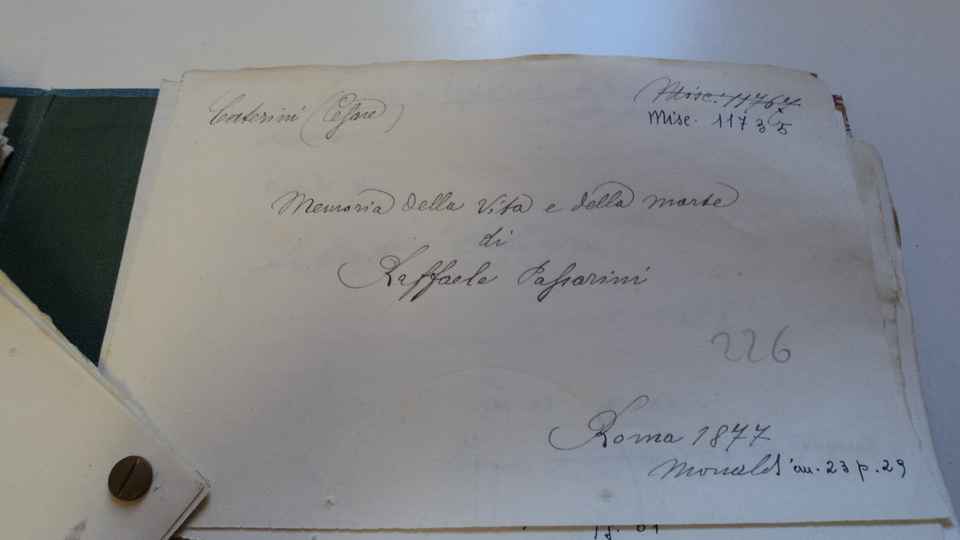 Caterini (Cesare)
Misc. 11767
Misc. 11735
Memoria della Vita e della morte
di
Raffaele Passarini
226
Roma 1877
Monaldi an. 23 p. 29